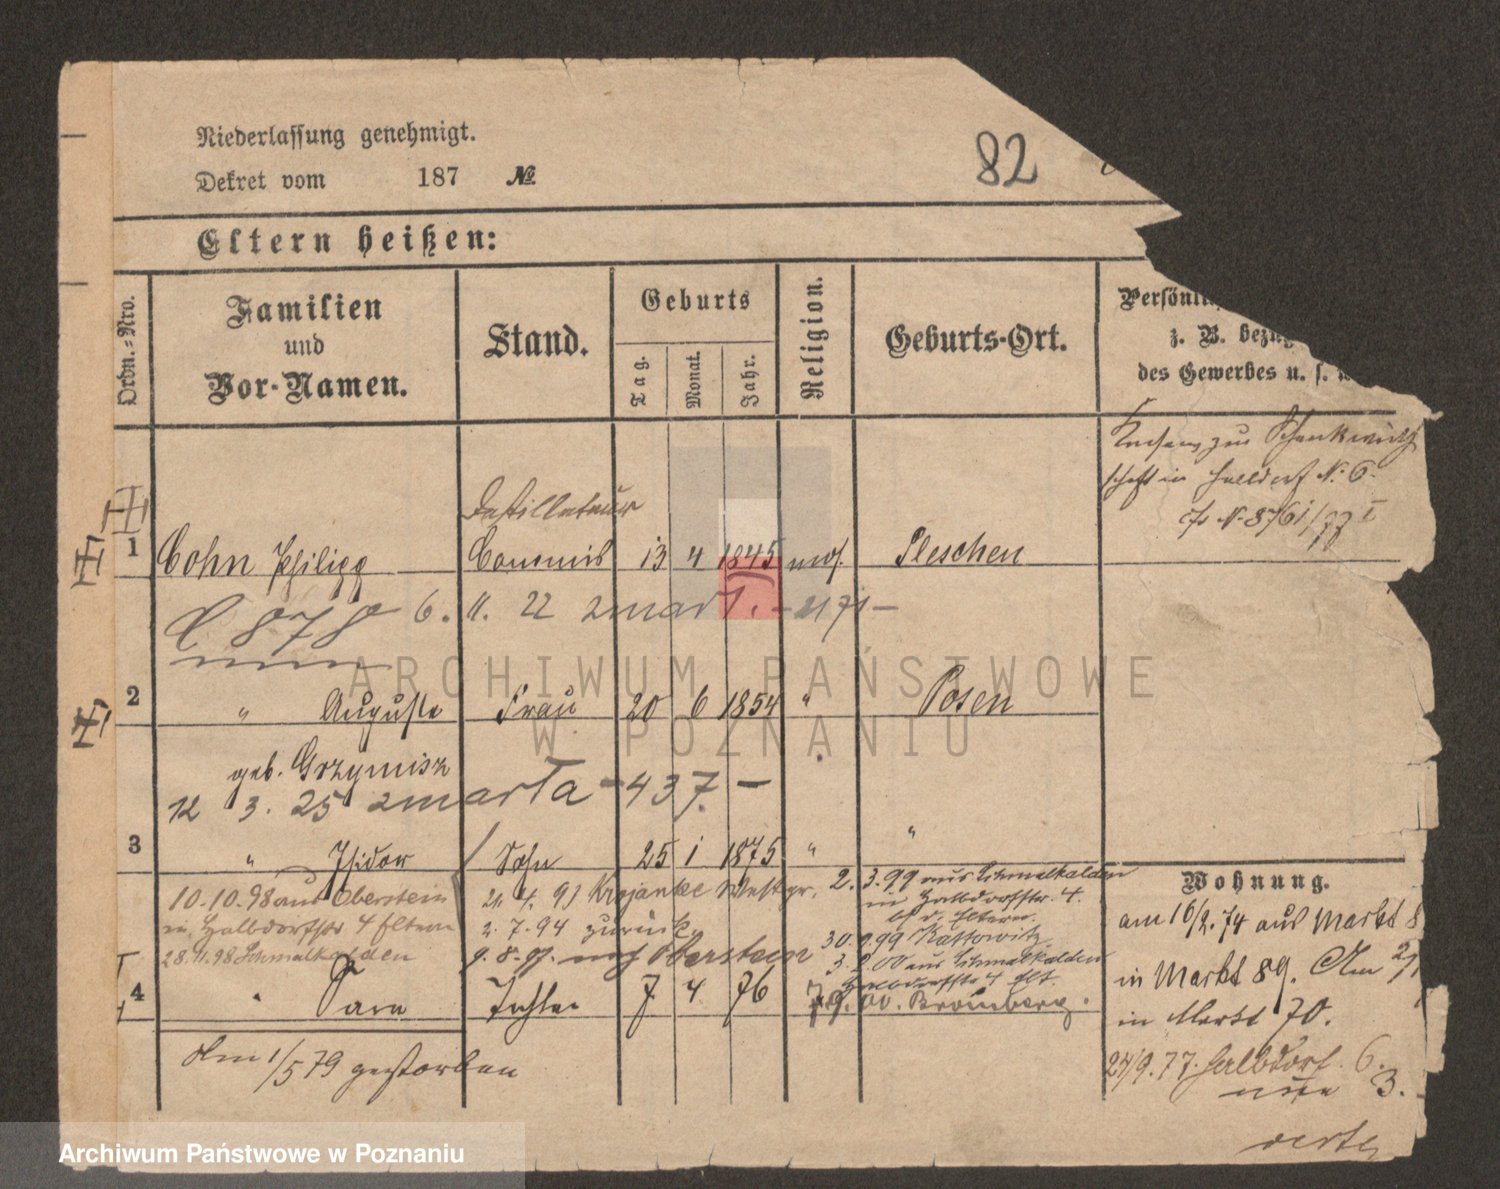 Niederlassung genehmigt.
Dekret vom 187 №
82
Eltern heißen:
Ordn.=Nro.
Familien
und
Vor-Namen.
Stand.
Geburts
Tag.
Monat.
Jahr.
Religion.
Geburts-Ort.
Persönli
z. B. bezü
des Gewerbes u. s.
Consens zur Schankwirth
schaft in Halldorf N. 6.
N. 8761/77 I
Destillateur
1 Cohn Philipp Commis 13 4 1845 mos. Pleschen
6. 11. 22 zmarł. – 2171 –
2 " Auguste Frau 20 6 1854 " Posen
geb. Grzymisz
12 3. 25 zmarła – 437. –
3 " Isidor Sohn 25 1 1875 " "
10.10.98 aus Oberstein
in Halbdorfstr 4 Eltern
28.11.98 Schmalkalden
4. 91 Krojanke Westpr.
2. 7. 94 zurück.
9. 8. 97. nach Oberstein
2. 3. 99 aus Schmalkalden
in Halbdorfstr. 4.
b. d. Eltern.
30. 9. 99 Kattowitz
3. 2. 00 aus Schmalkalden
Halbdorfstr 4 Elt.
7. 9. 00. Bromberg.
4 " Sara Tochter 7 4 76
Am 1/5 79 gestorben
Wohnung.
am 16/2. 74 aus Markt 8
in Markt 89. Am 2/1
in Markt 70.
24/9. 77. Halbdorf. 6.
3.
ARCHIWUM PAŃSTWOWE
W POZNANIU
Archiwum Państwowe w Poznaniu